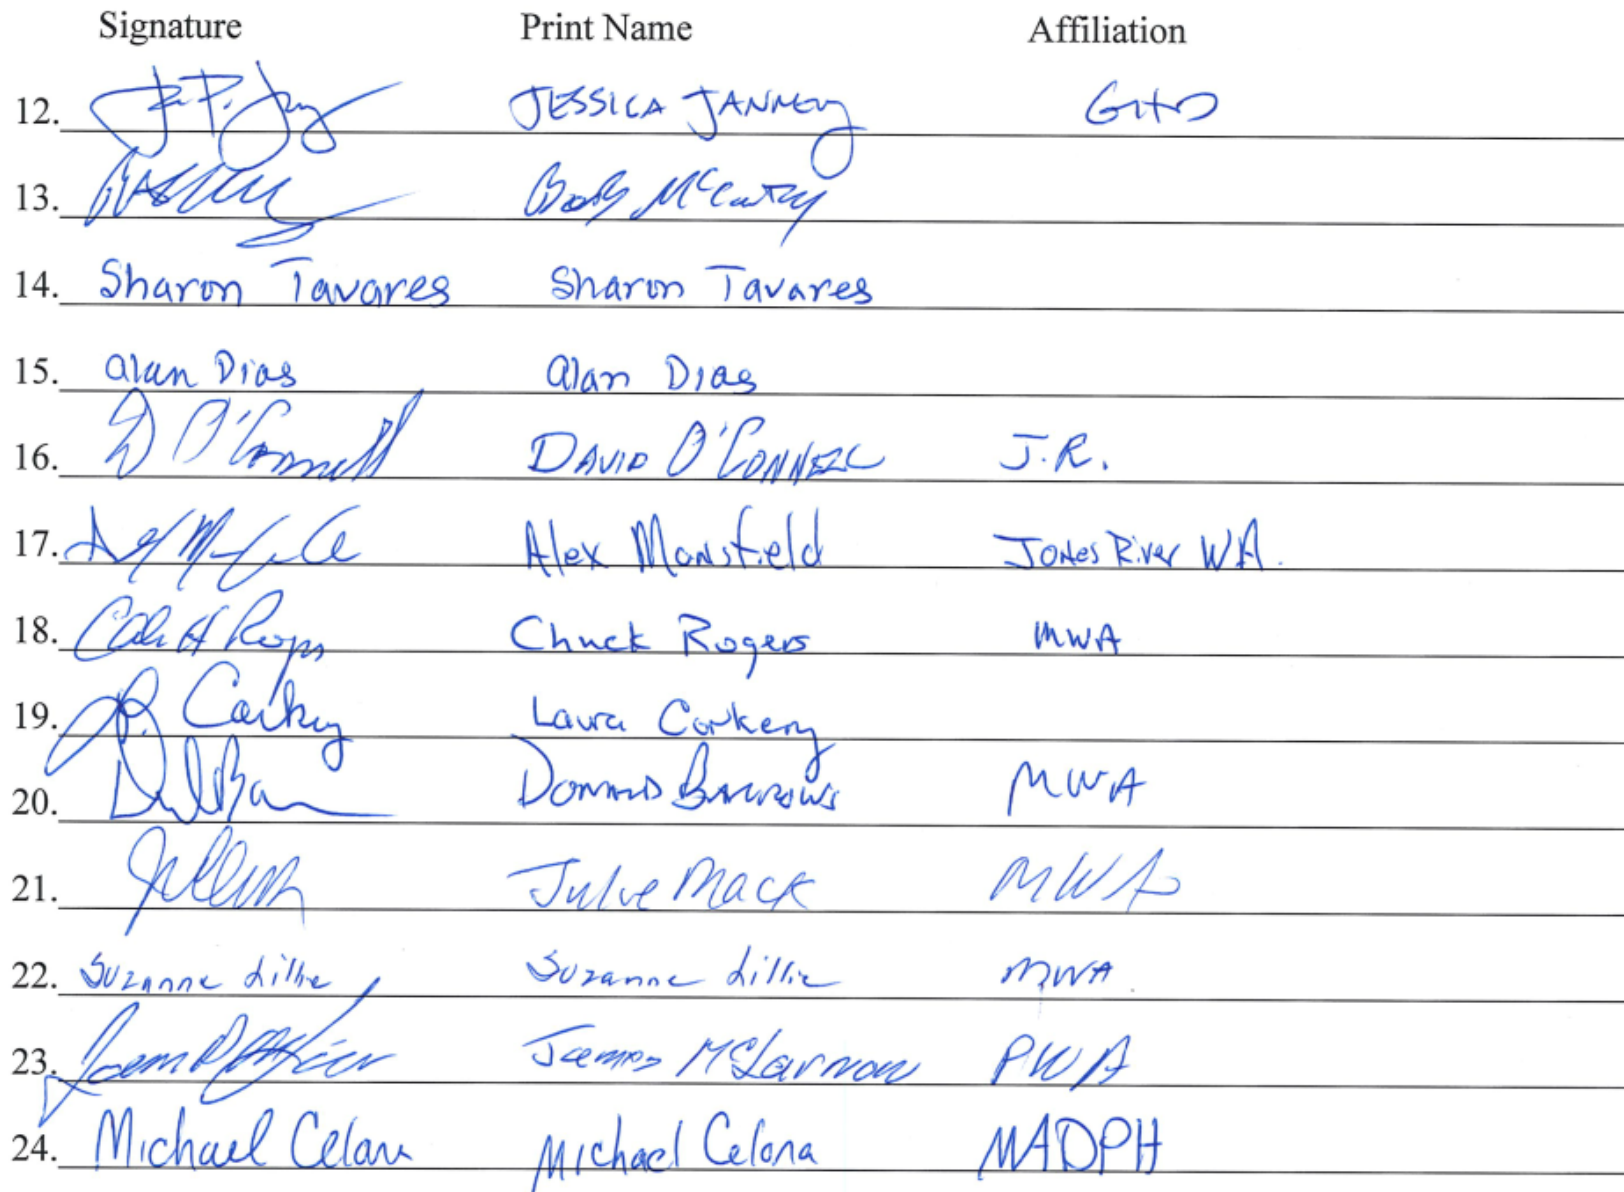 Signature Print Name Affiliation
12. JESSICA JANNEY GHD
13. McCarthy
14. Sharon Tavares Sharon Tavares
15. Alan Dias Alan Dias
16. D O'Connell DAVID O'CONNELL J.R.
17. Alex Mansfield Jones River WA.
18. Chuck Rogers MWA
19. Laura Corkery
20. DONALD BARROWS MWA
21. Julie Mack MWA
22. Suzanne Lillie Suzanne Lillie MWA
23. James McLarnon PWA
24. Michael Celona Michael Celona MADPH